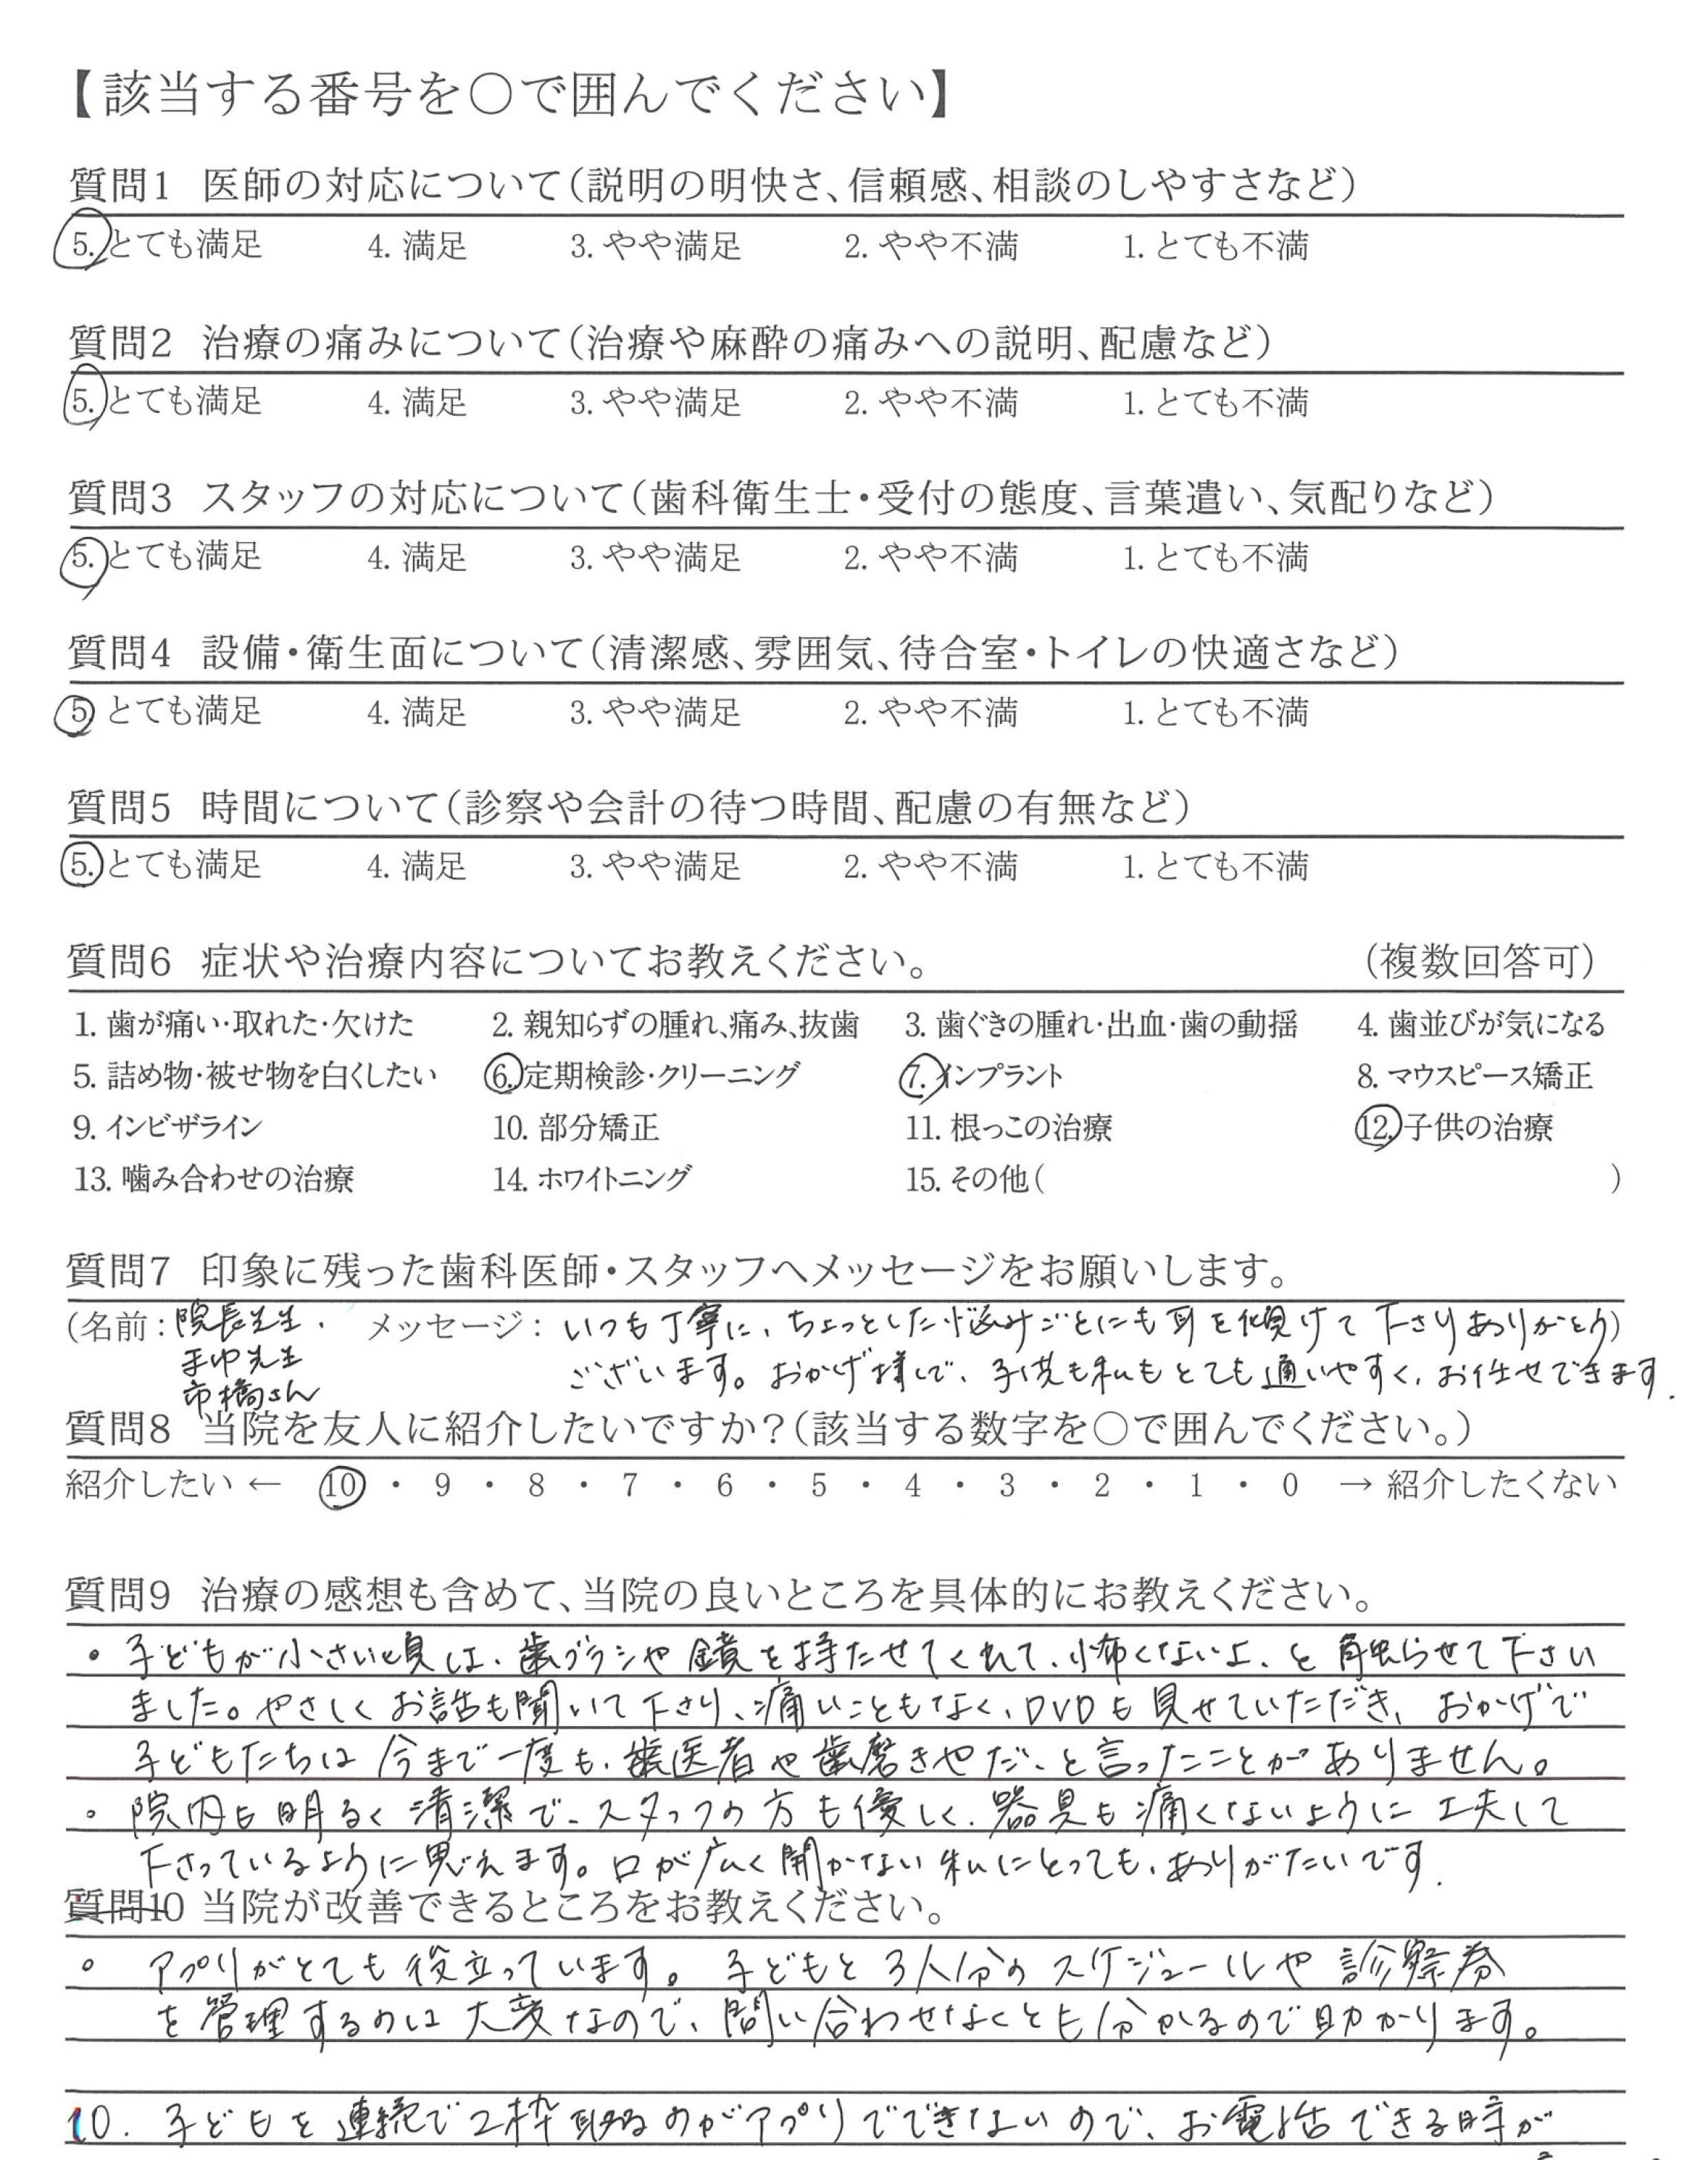 【該当する番号を○で囲んでください】
質問1 医師の対応について（説明の明快さ、信頼感、相談のしやすさなど）
5. とても満足 4. 満足 3. やや満足 2. やや不満 1. とても不満
質問2 治療の痛みについて（治療や麻酔の痛みへの説明、配慮など）
5. とても満足 4. 満足 3. やや満足 2. やや不満 1. とても不満
質問3 スタッフの対応について（歯科衛生士・受付の態度、言葉遣い、気配りなど）
5. とても満足 4. 満足 3. やや満足 2. やや不満 1. とても不満
質問4 設備・衛生面について（清潔感、雰囲気、待合室・トイレの快適さなど）
5 とても満足 4. 満足 3. やや満足 2. やや不満 1. とても不満
質問5 時間について（診察や会計の待つ時間、配慮の有無など）
5. とても満足 4. 満足 3. やや満足 2. やや不満 1. とても不満
質問6 症状や治療内容についてお教えください。 （複数回答可）
1. 歯が痛い・取れた・欠けた 2. 親知らずの腫れ、痛み、抜歯 3. 歯ぐきの腫れ・出血・歯の動揺 4. 歯並びが気になる
5. 詰め物・被せ物を白くしたい 6. 定期検診・クリーニング 7. インプラント 8. マウスピース矯正
9. インビザライン 10. 部分矯正 11. 根っこの治療 12. 子供の治療
13. 噛み合わせの治療 14. ホワイトニング 15. その他（ ）
質問7 印象に残った歯科医師・スタッフへメッセージをお願いします。
（名前：院長先生、 メッセージ：いつも丁寧に、ちょっとした悩みごとにも耳を傾けて下さりありがとう）
まゆ先生 ございます。おかげ様で、子供も私もとても通いやすく、お任せできます.
市橋さん
質問8 当院を友人に紹介したいですか？（該当する数字を○で囲んでください。）
紹介したい ← 10 ・ 9 ・ 8 ・ 7 ・ 6 ・ 5 ・ 4 ・ 3 ・ 2 ・ 1 ・ 0 → 紹介したくない
質問9 治療の感想も含めて、当院の良いところを具体的にお教えください。
・子どもが小さい頃は、歯ブラシや鏡を持たせてくれて、怖くないよ、と触らせて下さい
ました。やさしくお話も聞いて下さり、痛いこともなく、DVDも見せていただき、おかげで
子どもたちは今まで一度も、歯医者や歯磨きやだ、と言ったことがありません。
・院内も明るく清潔で、スタッフの方も優しく、器具も痛くないように工夫して
下さっているように思えます。口が広く開かない私にとっても、ありがたいです.
質問10 当院が改善できるところをお教えください。
・アプリがとても役立っています。子どもと3人分のスケジュールや診察券
を管理するのは大変なので、問い合わせなくとも分かるので助かります。
10. 子どもを連続で2枠取るのがアプリでできないので、お電話できる時が